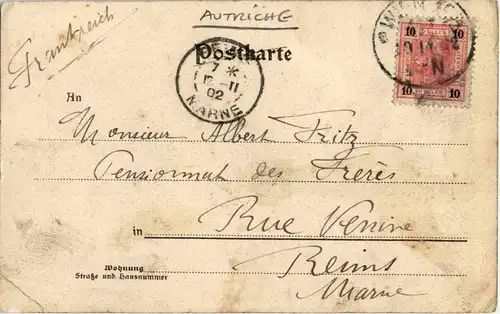 AUTRICHE
Frankreich
Postkarte
7 *
12-11
02
MARNE
WIEN
10 10
An
Monsieur Albert Fritz
Pensionnat des Frères
in Rue Venise
Reims
Marne
Wohnung
Straße und Hausnummer